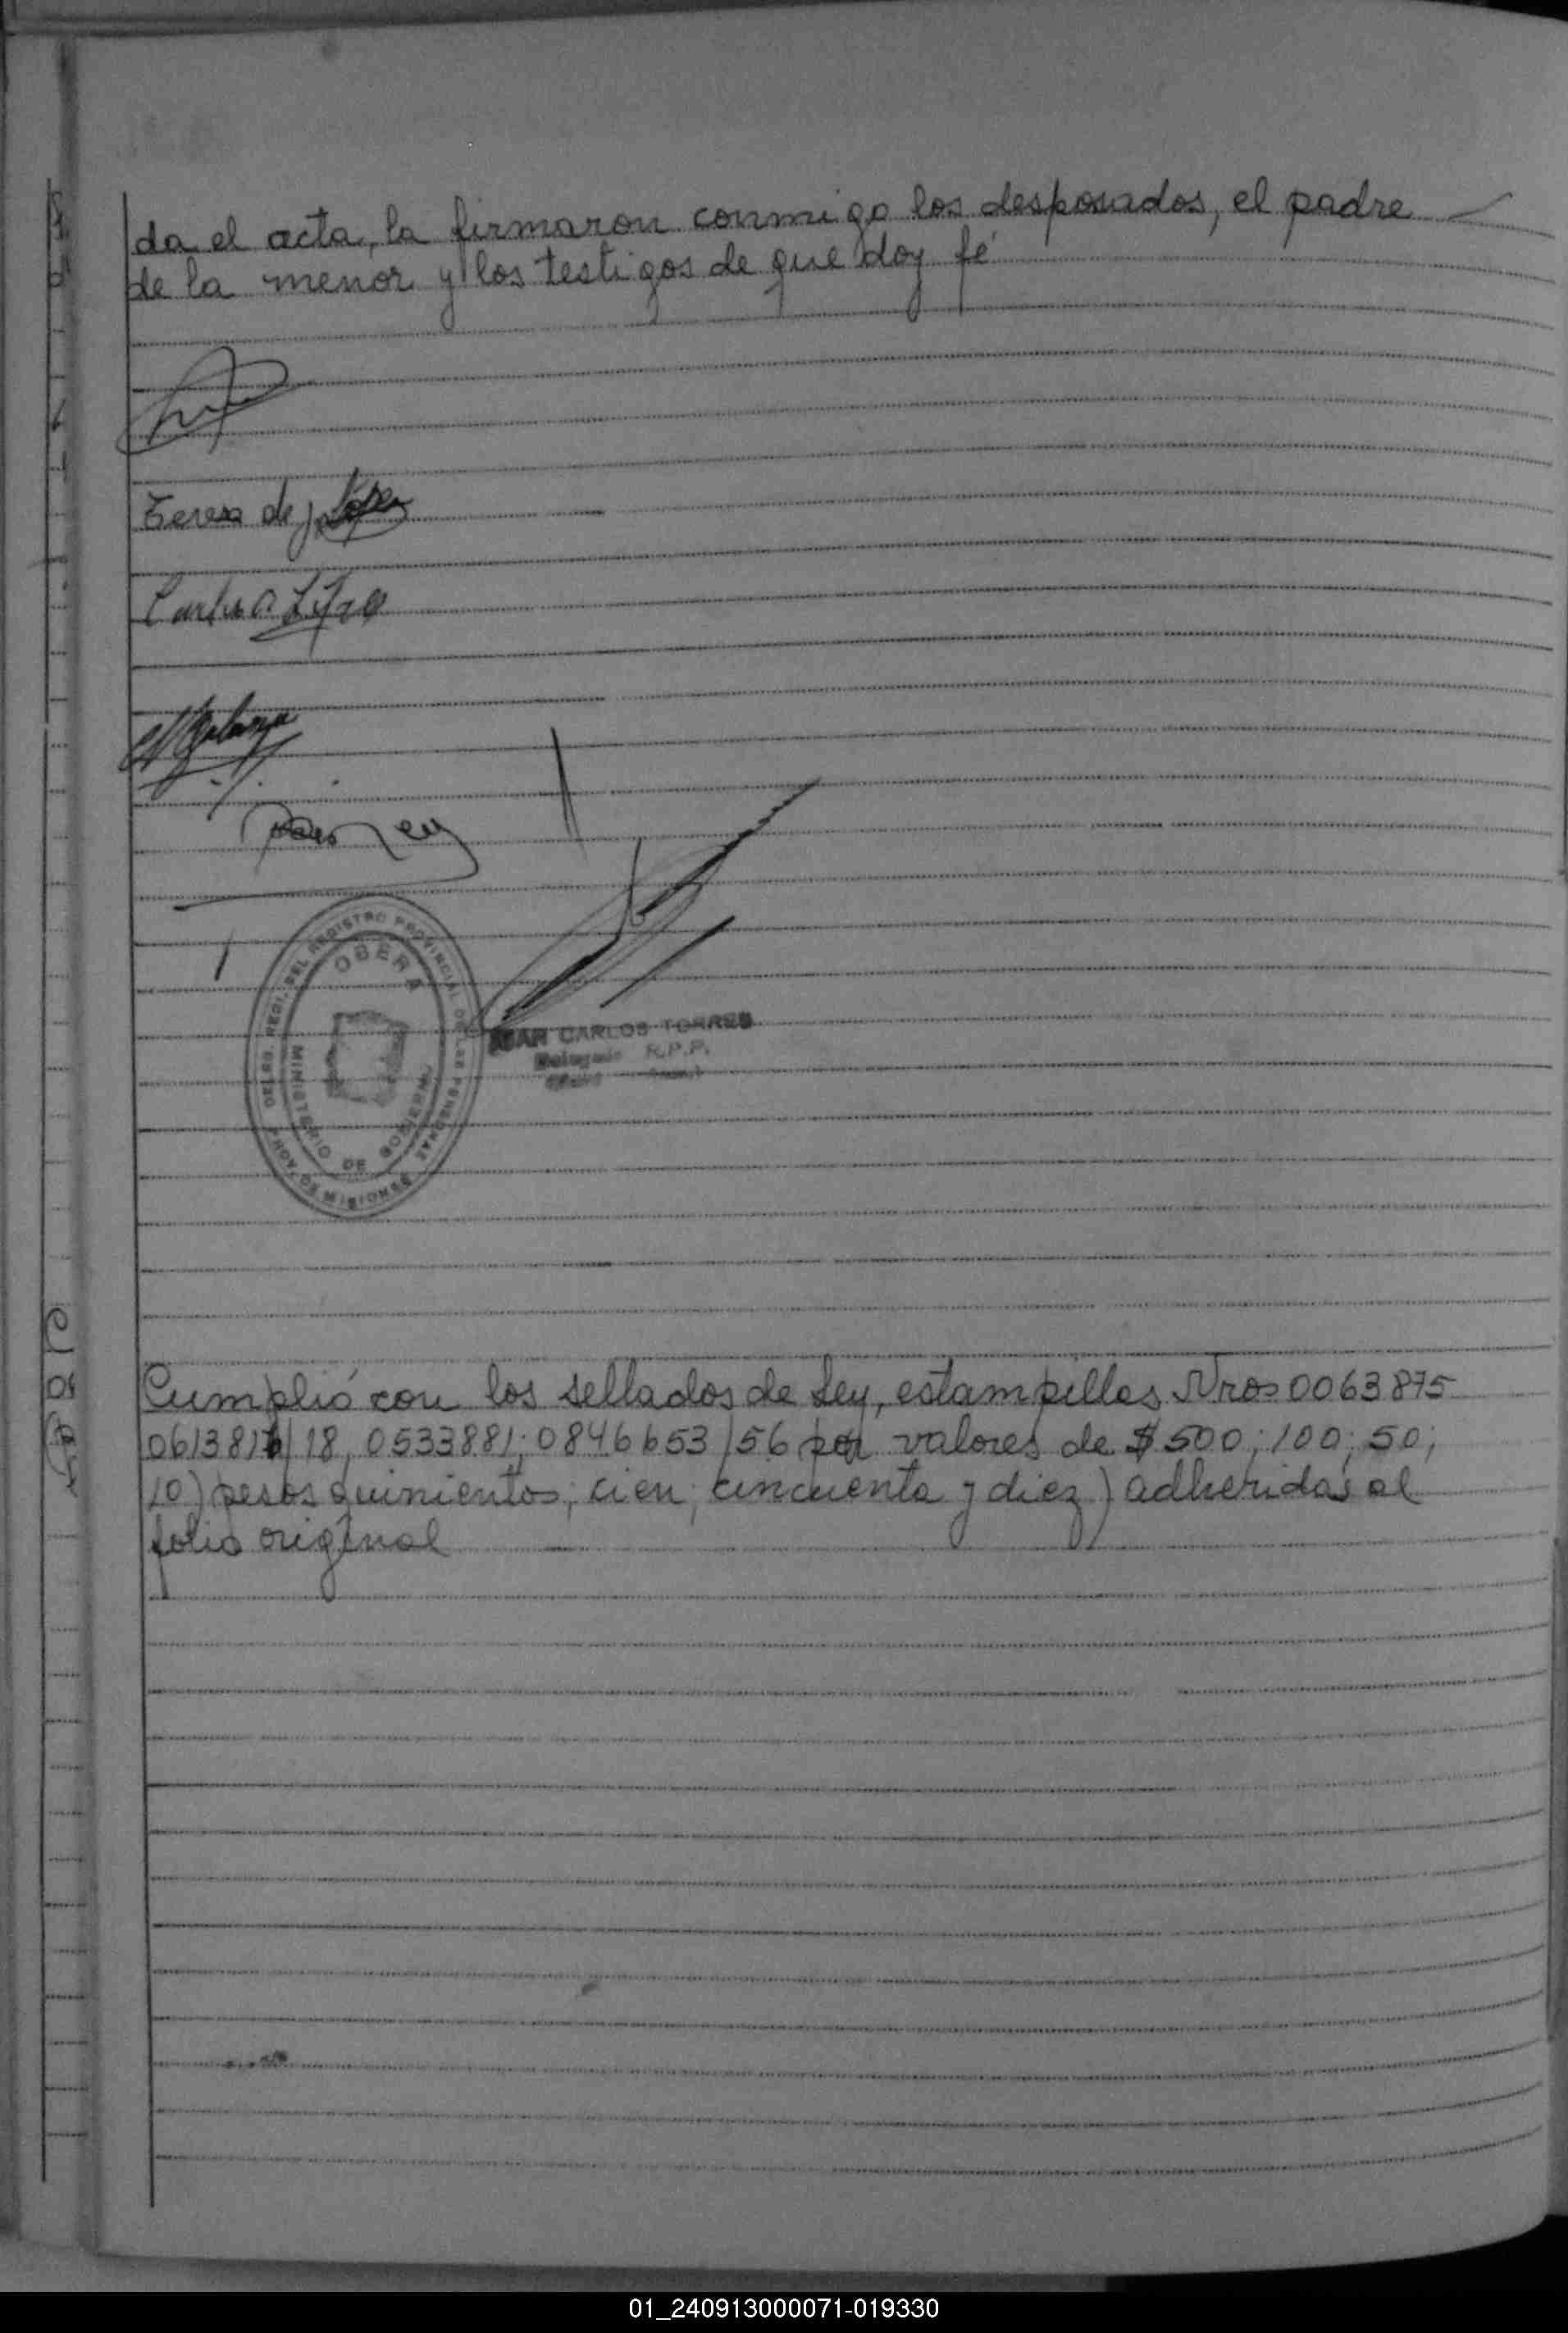 da el acta, la firmaron conmigo los desposados, el padre
de la menor y los testigos de que doy fé
Teresa de
Carlos A.
DELEG. REGI. DEL REGISTRO PROVINCIAL DE LAS PERSONAS
OBERA
MINISTERIO DE GOBIERNO
PROV. DE MISIONES
JUAN CARLOS TORRES
Delegado R.P.P.
Cumplió con los sellados de Ley, estampillas Nros 0063875
061381 /18, 0533881; 0846653/56 por valores de $ 500; 100; 50;
10) pesos quinientos; cien; cincuenta y diez) adheridas al
folio original
01_240913000071-019330